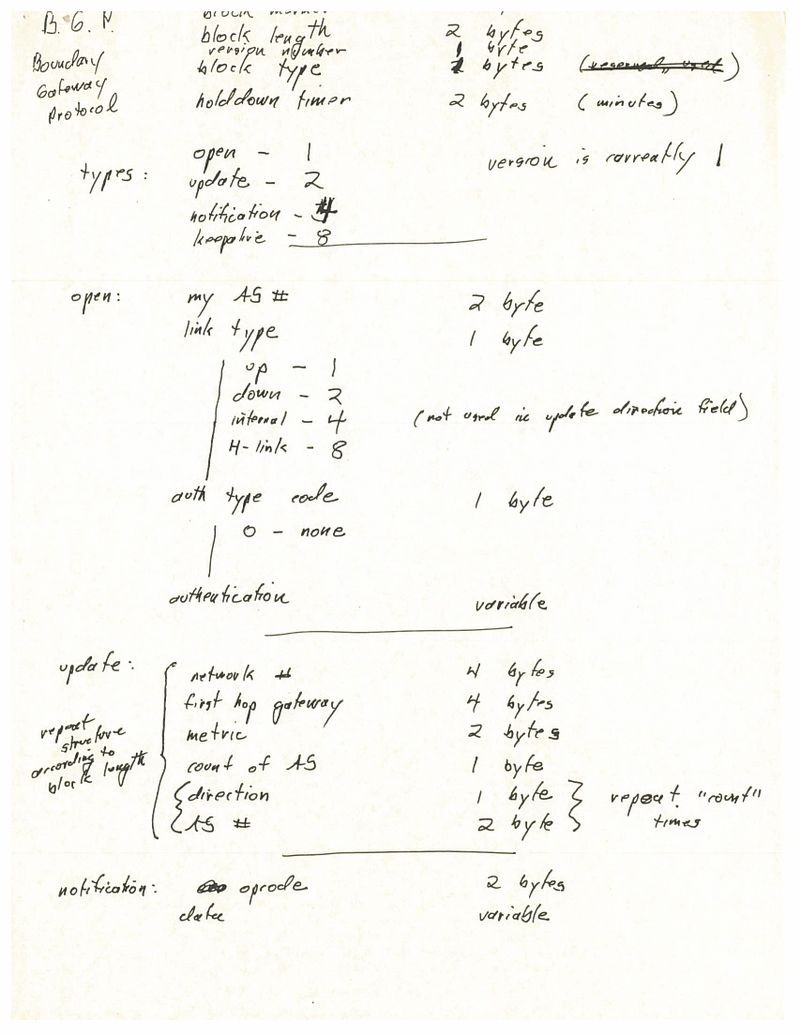 B. G. P.
block marker
block length 2 bytes
version number 1 byte
Boundary block type 1 bytes
Gateway
Protocol holddown timer 2 bytes (minutes)
open - 1 version is currently 1
types: update - 2
notification - 4
keepalive - 8
open: my AS # 2 byte
link type 1 byte
up - 1
down - 2
internal - 4 (not used in update direction field)
H-link - 8
auth type code 1 byte
0 - none
authentication variable
update: network # 4 bytes
first hop gateway 4 bytes
repeat metric 2 bytes
structure
according to count of AS 1 byte
block length direction 1 byte repeat "count"
AS # 2 byte times
notification: opcode 2 bytes
data variable